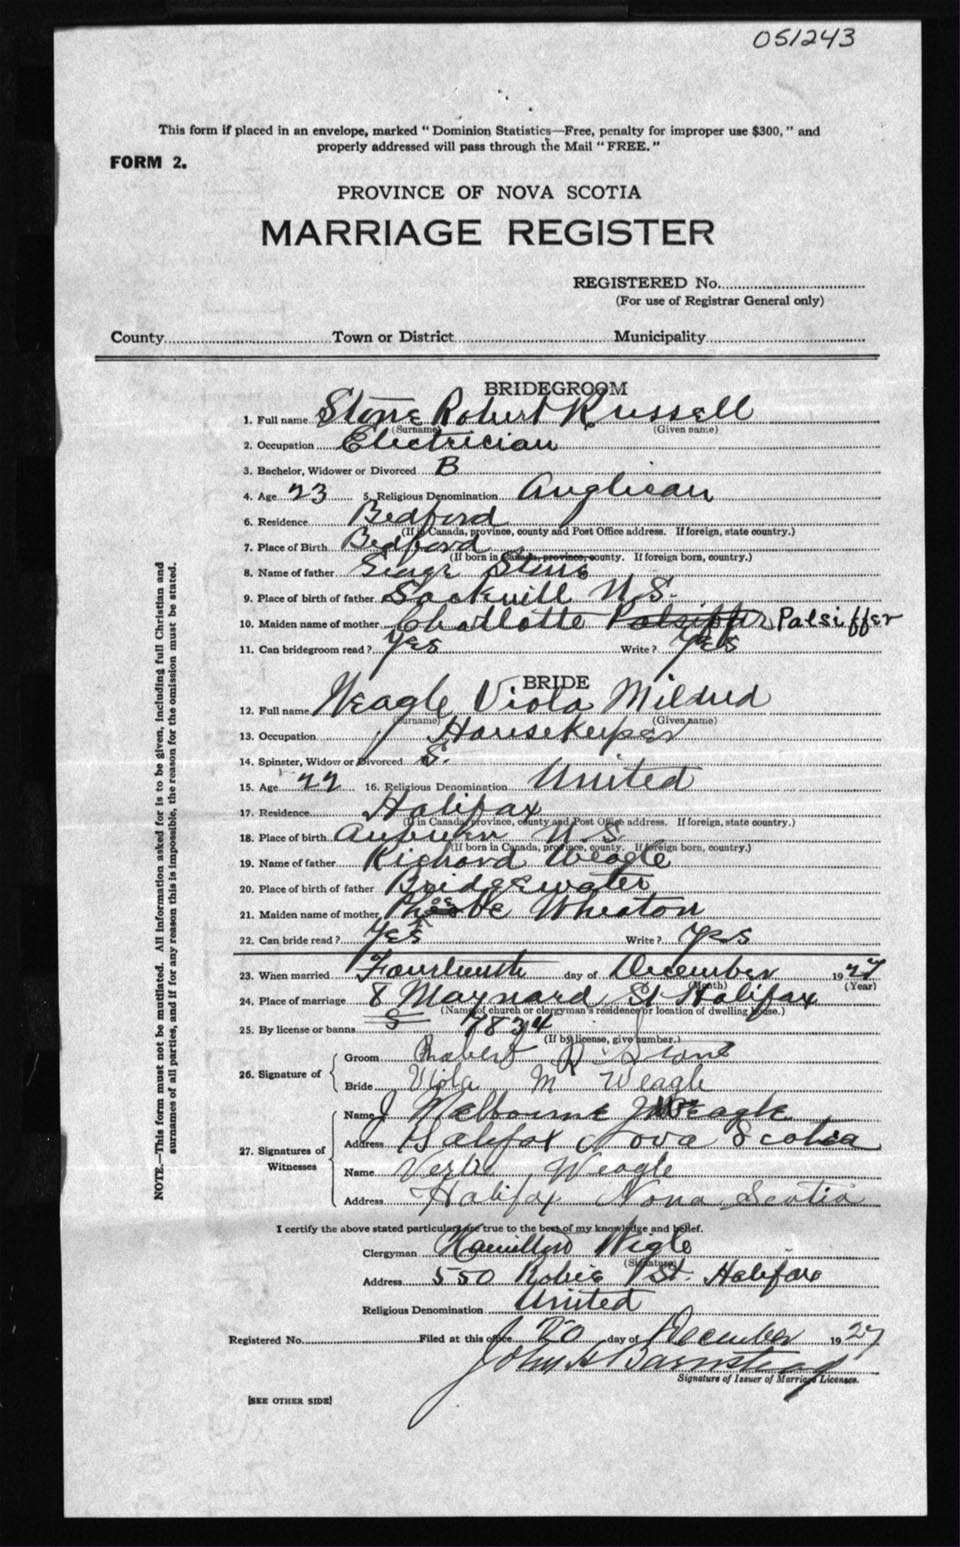 051243
This form if placed in an envelope, marked "Dominion Statistics—Free, penalty for improper use $300," and
properly addressed will pass through the Mail "FREE."
FORM 2.
PROVINCE OF NOVA SCOTIA
MARRIAGE REGISTER
REGISTERED No.
(For use of Registrar General only)
County Town or District Municipality
BRIDEGROOM
1. Full name Stone Robert Russell
(Surname) (Given name)
2. Occupation Electrician
3. Bachelor, Widower or Divorced B
4. Age 23 5. Religious Denomination Anglican
6. Residence Bedford
(If in Canada, province, county and Post Office address. If foreign, state country.)
7. Place of Birth Bedford
(If born in Canada, province, county. If foreign born, country.)
8. Name of father Stone
9. Place of birth of father Sackvill N.S.
10. Maiden name of mother Charlotte Palsiffer Palsiffer
11. Can bridegroom read? Yes Write? Yes
BRIDE
12. Full name Weagle Viola Mildred
(Surname) (Given name)
13. Occupation Housekeeper
14. Spinster, Widow or Divorced S.
15. Age 22 16. Religious Denomination United
17. Residence Halifax
(If in Canada, province, county and Post Office address. If foreign, state country.)
18. Place of birth Auburn N S
(If born in Canada, province, county. If foreign born, country.)
19. Name of father Richard Weagle
20. Place of birth of father Bridgewater
21. Maiden name of mother Phoebe Wheaton
22. Can bride read? Yes Write? Yes
23. When married Fourteenth day of December 1927
(Month) (Year)
24. Place of marriage 8 Maynard St Halifax
(Name of church or clergyman's residence or location of dwelling house.)
25. By license or banns S 7834
(If by license, give number.)
26. Signature of
Groom Robert R. Stone
Bride Viola M Weagle
27. Signatures of Witnesses
Name J Melbourne Weagle
Address Halifax Nova Scotia
Name Weagle
Address Halifax Nova Scotia
I certify the above stated particulars are true to the best of my knowledge and belief.
Clergyman Hamilton Wigle
(Signature)
Address 550 Robie St. Halifax
Religious Denomination United
Registered No. Filed at this office 20 day of December 1927
John A Barnstead
Signature of Issuer of Marriage Licenses.
[SEE OTHER SIDE]
NOTE.—This form must not be mutilated. All information asked for is to be given, including full Christian and
surnames of all parties, and if for any reason this is impossible, the reason for the omission must be stated.